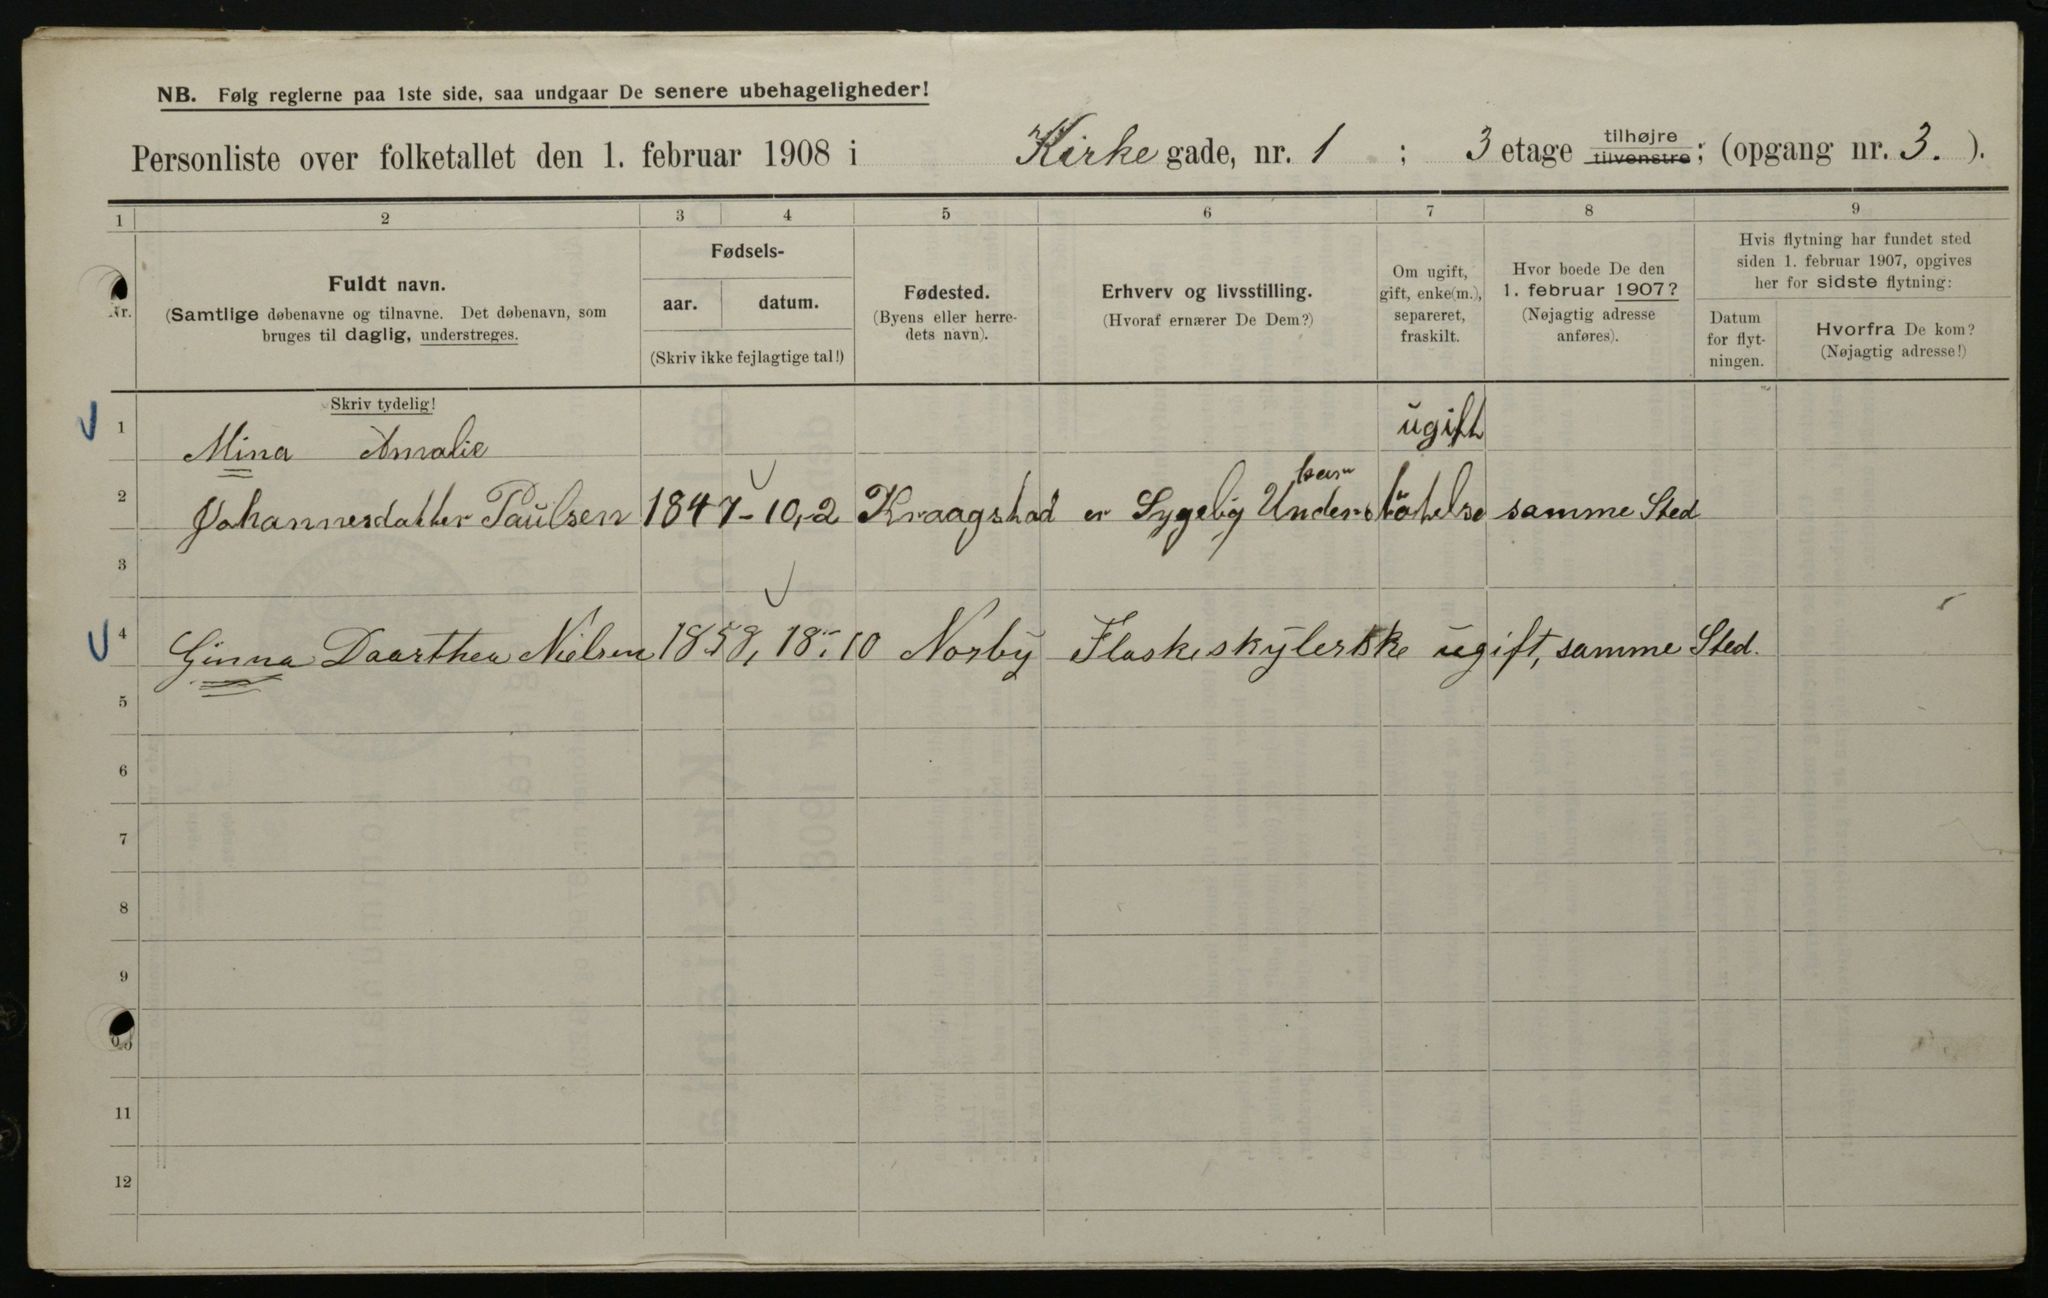 NB. Følg reglerne paa 1ste side, saa undgaar De senere ubehageligheder!
Personliste over folketallet den 1. februar 1908 i Kirke gade, nr. 1 ; 3 etage tilhøjre tilvenstre; (opgang nr. 3. ).
1 2 3 4 5 6 7 8 9
Nr.
Fuldt navn.
(Samtlige døbenavne og tilnavne. Det døbenavn, som
bruges til daglig, understreges.
Skriv tydelig!
Fødsels-
aar. datum.
(Skriv ikke fejlagtige tal!)
Fødested.
(Byens eller herre-
dets navn).
Erhverv og livsstilling.
(Hvoraf ernærer De Dem?)
Om ugift,
gift, enke(m.),
separeret,
fraskilt.
Hvor boede De den
1. februar 1907?
(Nøjagtig adresse
anføres).
Hvis flytning har fundet sted
siden 1. februar 1907, opgives
her for sidste flytning:
Datum
for flyt-
ningen.
Hvorfra De kom?
(Nøjagtig adresse!)
1 Mina Amalie ugift
2 Johannesdatter Paulsen 1847-10,-2 Kraagstad er Sygelig Understøtelse samme Sted
3
4 Ginna Daarthea Nielsen 1858, 18-10 Norby Flaskeskylerske ugift, samme Sted.
5
6
7
8
9
10
11
12